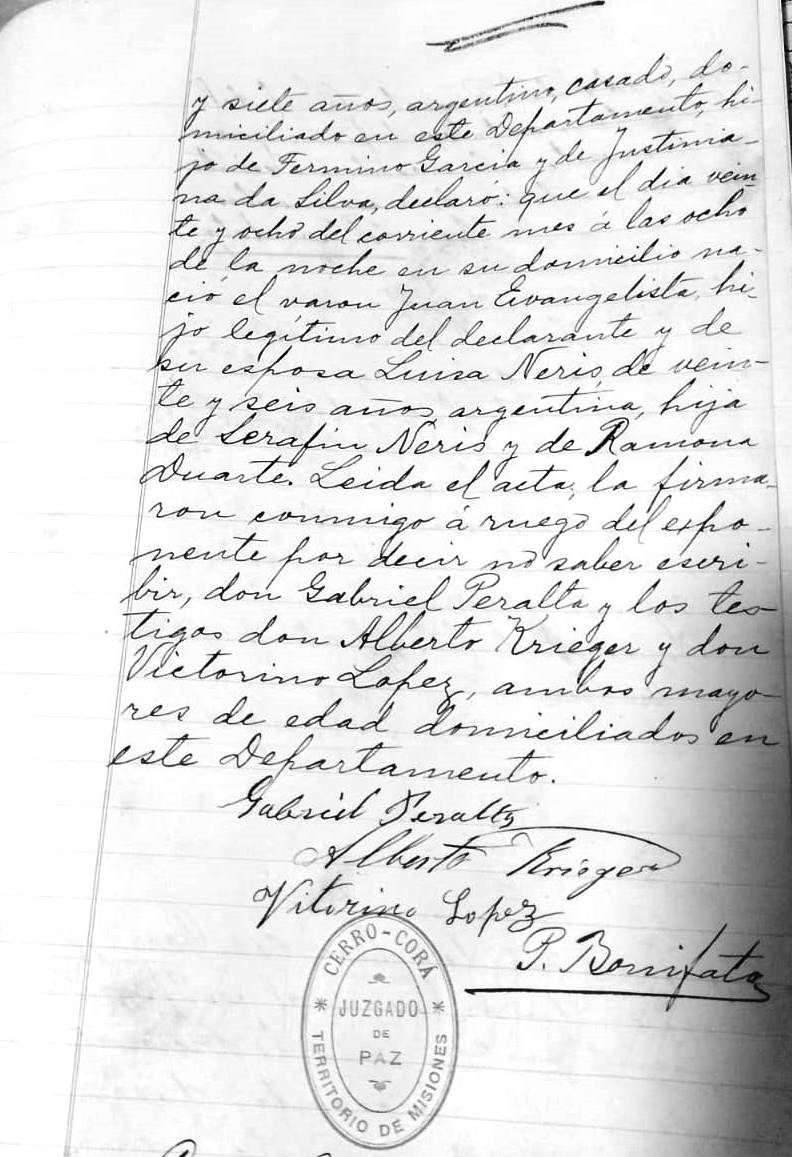 y siete años, argentino, casado, do-
miciliado en este Departamento, hi-
jo de Fermino Garcia y de Justinia-
na da Silva, declaró: que el dia vein-
te y ocho del corriente mes á las ocho
de la noche en su domicilio na-
ció el varon Juan Evangelista, hi-
jo legítimo del declarante y de
su esposa Luisa Neris, de vein-
te y seis años, argentina, hija
de Serafin Neris y de Ramona
Duarte. Leida el acta, la firma-
ron conmigo á ruego del expo-
nente por decir no saber escri-
bir, don Gabriel Peralta y los tes-
tigos don Alberto Krieger y don
Victorino Lopez, ambos mayo-
res de edad domiciliados en
este Departamento.
Gabriel Peralta
Alberto Krieger
Vitorino Lopez
P. Bonifato
CERRO-CORÁ
JUZGADO
DE
PAZ
TERRITORIO DE MISIONES